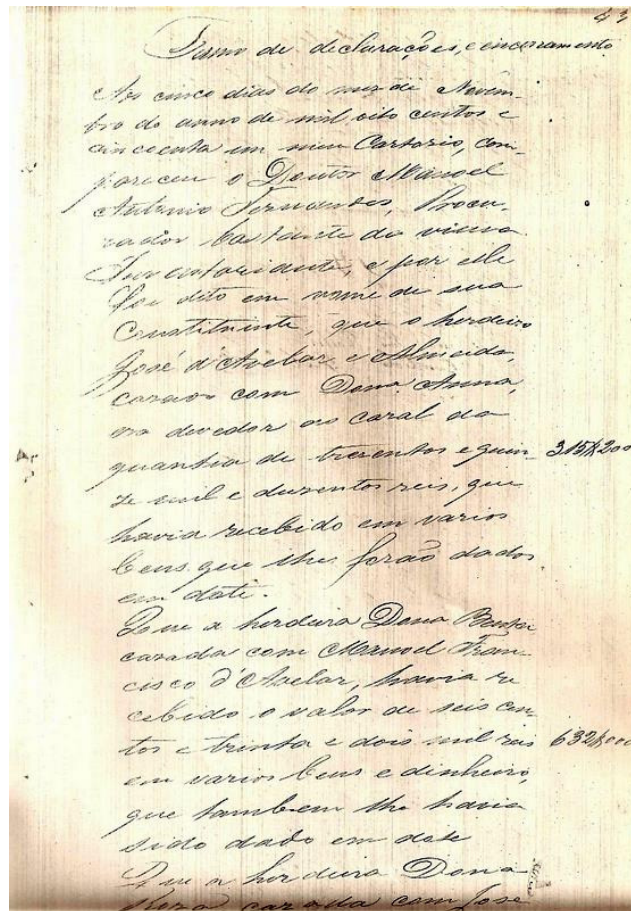 43
Termo de declarações, e encerramento
Aos cinco dias do mez de Novem-
bro do anno de mil oito centos e
cincoenta em meu Cartorio, com-
pareceu o Doutor Manoel
Antonio Fernandes, Procu-
rador bastante da viuva
Inventariante, e por elle
foi dito em nome de sua
Constituinte, que o herdeiro
José d'Avelar e Almeida,
casado com Dona Anna,
era devedor ao casal da
quantia de trezentos e quin- 315$200
ze mil e duzentos reis, que
havia recebido em varios
bens que lhe forão dados
em dote.
Que a herdeira Dona
cazada com Manoel Fran-
cisco d'Avelar, havia re
cebido o valor de seis cen-
tos e trinta e dois mil reis 632$000
em varios bens e dinheiro,
que tambem lhe havia
sido dado em dote
Que a herdeira Dona
Roza cazada com José